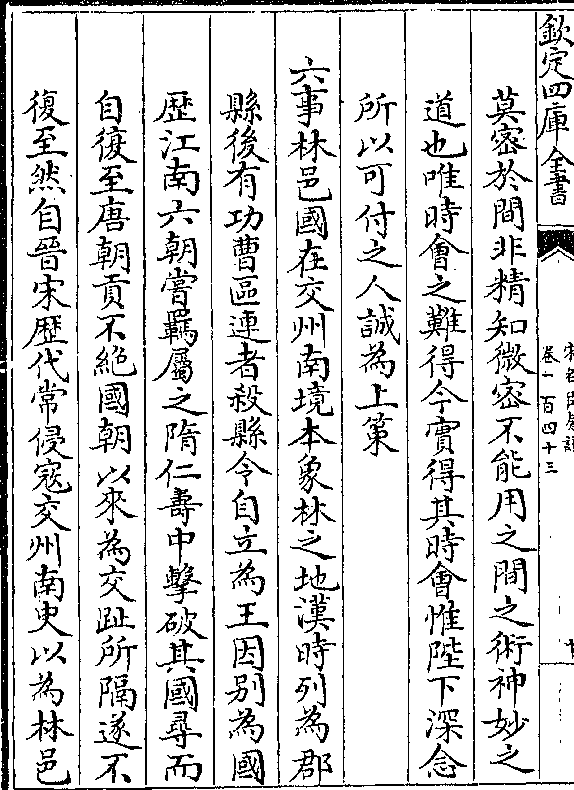 欽定四庫全書
卷一百四十三
莫密於間非精知微密不能用之間之術神妙之
道也唯時會之難得今實得其時會惟陛下深念
所以可付之人誠為上策
六事林邑國在交州南境本象林之地漢時列為郡
縣後有功曹區連者殺縣令自立為王因別為國
歴江南六朝嘗羈屬之隋仁壽中擊破其國尋而
自復至唐朝貢不絶國朝以來為交趾所隔遂不
復至然自晉宋歴代常侵寇交州南史以為林邑